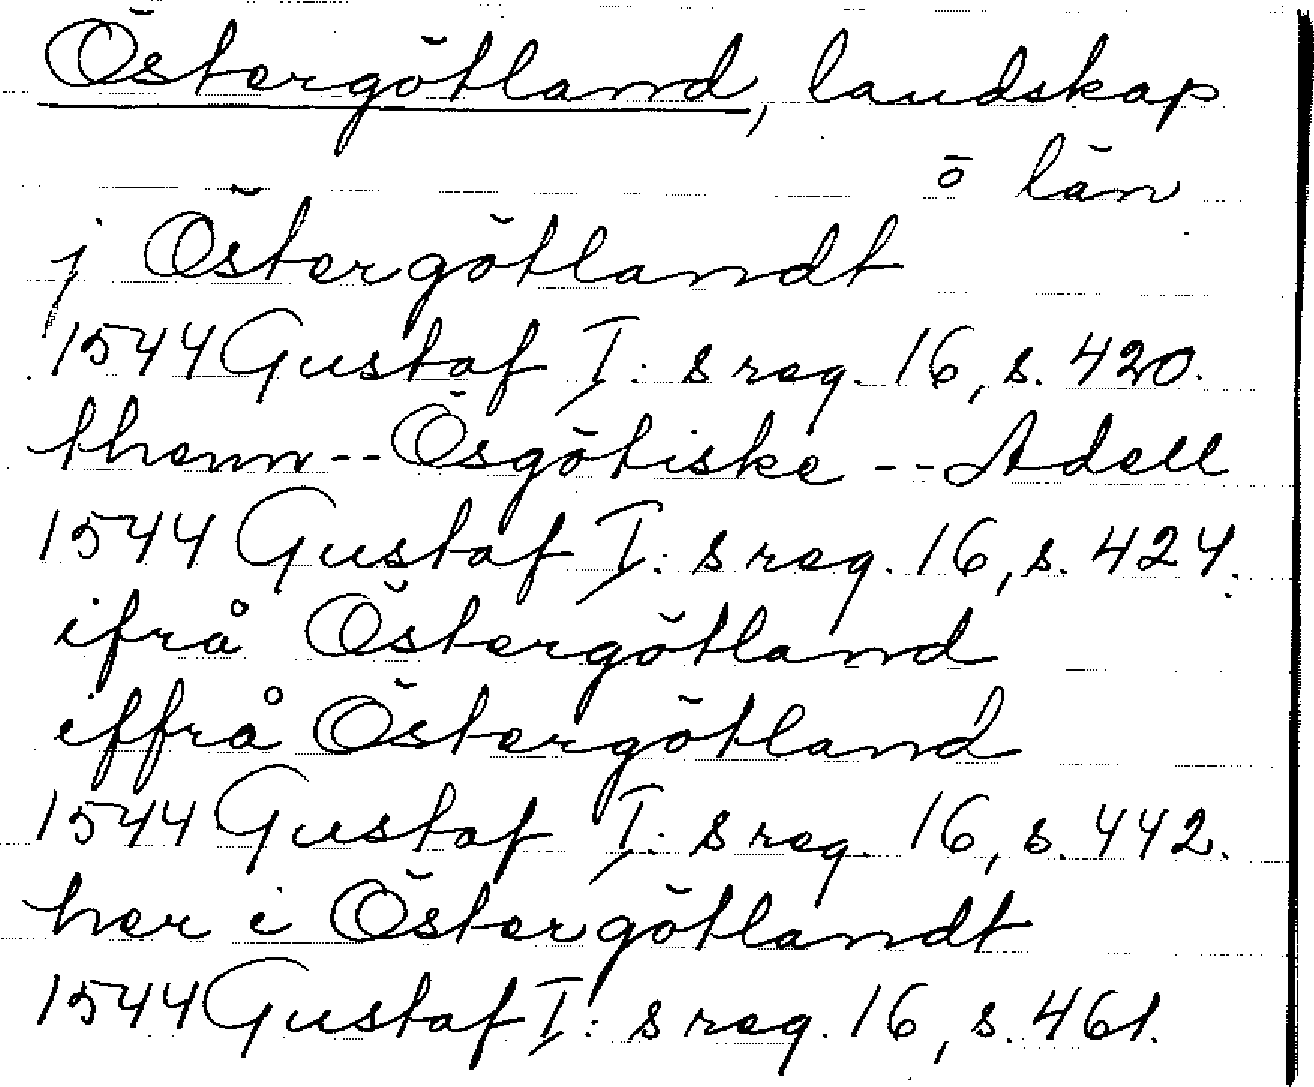 Östergötland, landskap
o län
j Östergötlandt
1544 Gustaf I:s reg. 16, s. 420.
thenn -- Ösgötiske -- Adell
1544 Gustaf I:s reg. 16, s. 424.
ifrå Östergötland
iffrå Östergötland
1544 Gustaf I:s reg. 16, s. 442.
her i Östergötlandt
1544 Gustaf I:s reg. 16, s. 461.